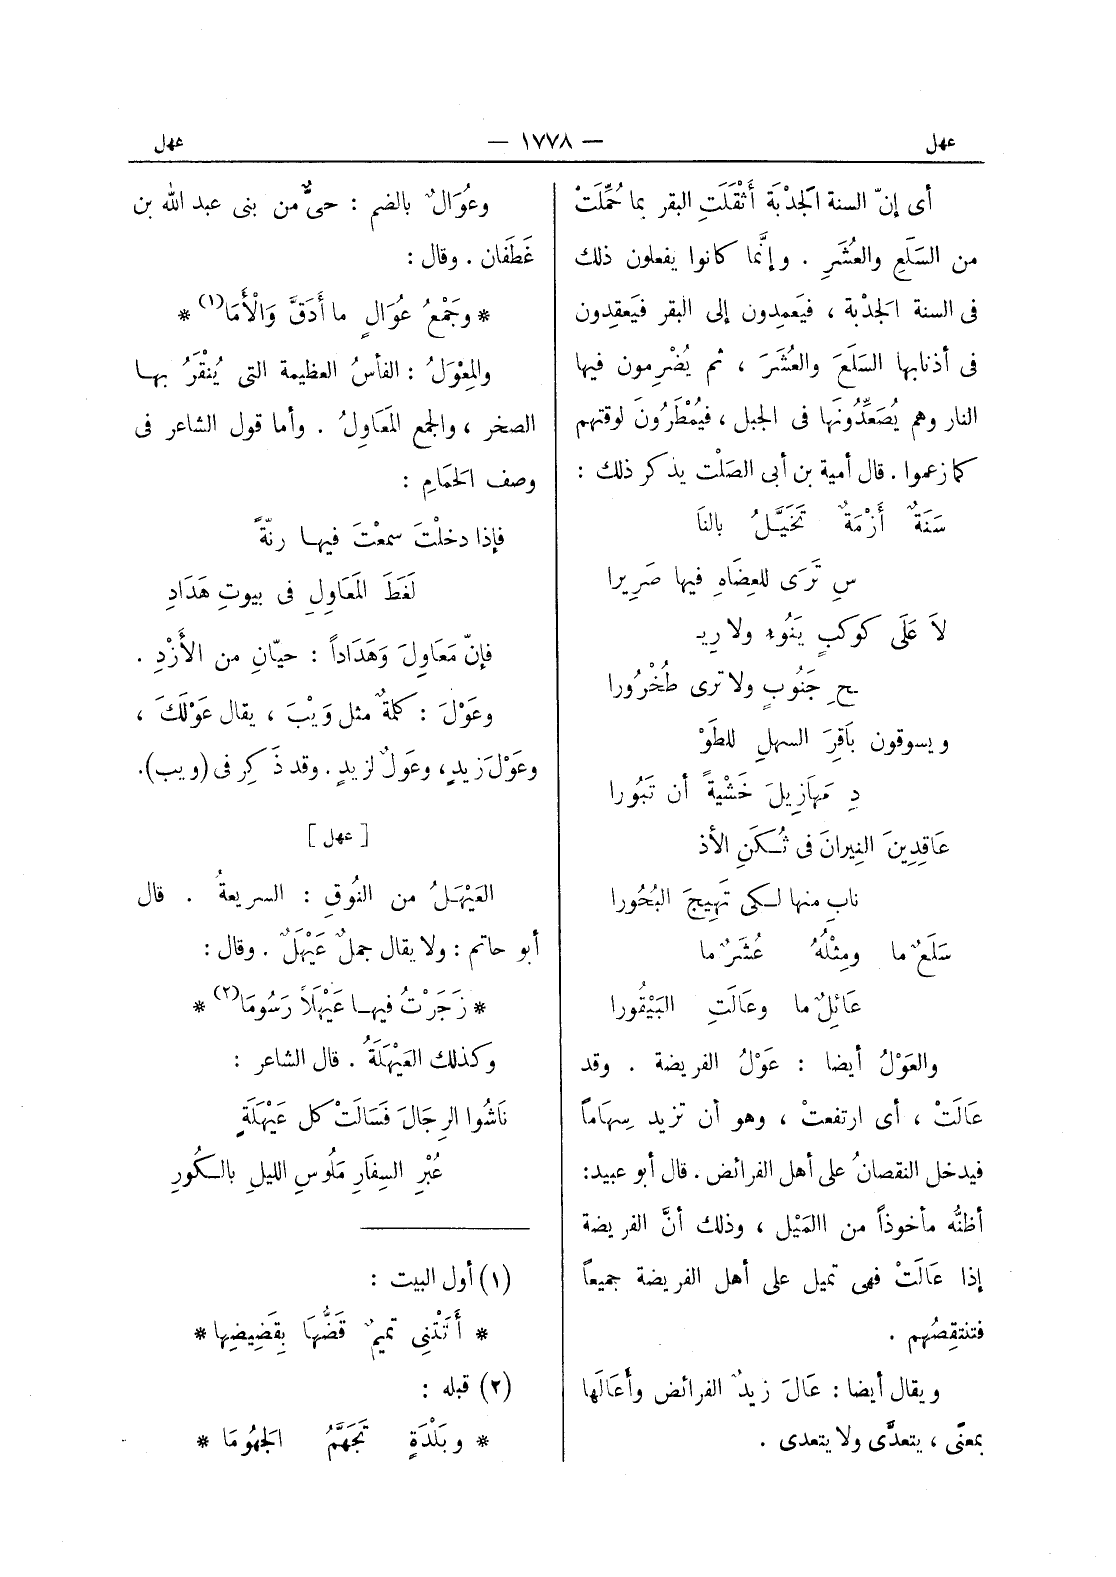 عهل — ١٧٧٨ — عهل
أى إنّ السنة الجَدْبَة أَثْقَلَتِ البقر بما حُمِّلَتْ
من السَلَعِ والعُشَرِ . وإنَّما كانوا يفعلون ذلك
فى السنة الجَدْبة ، فيَعمِدون إلى البقر فيَعقِدون
فى أذنابها السَلَعَ والعُشَرَ ، ثم يُضْرِمون فيها
النار وهم يُصَعِّدُونَها فى الجبل ، فيُمْطَرُونَ لوقتهم
كما زعموا . قال أمية بن أبى الصَلْت يذكر ذلك :
سَنَةٌ أَزْمَةٌ تَخَيَّلُ بالنَا
سِ تَرَى للعِضَاهِ فيها صَرِيرا
لاَ عَلَى كوكبٍ يَنُوءُ ولا رِيـ
ـحِ جَنُوبٍ ولا ترى طُخْرُورا
ويسوقون بَاقِرَ السهلِ للطَوْ
دِ مَهَازِيلَ خَشْيةً أن تَبُورا
عَاقِدِينَ النِيرانَ فى ثُكَنِ الأذ
نابِ منها لكى تَهِيجَ البُحُورا
سَلَعٌ ما ومِثْلُهُ عُشَرٌ ما
عَائِلٌ ما وعَالَتِ البَيْقُورا
والعَوْلُ أيضا : عَوْلُ الفريضة . وقد
عَالَتْ ، أى ارتفعتْ ، وهو أن تزيد سِهَاماً
فيدخل النقصانُ على أهل الفرائض . قال أبو عبيد :
أظنُّه مأخوذاً من االمَيْل ، وذلك أنَّ الفريضة
إذا عَالَتْ فهى تميل على أهل الفريضة جميعاً
فتنتقِصُهم .
ويقال أيضا : عَالَ زيدٌ الفرائض وأَعَالَها
بمعنًى ، يتعدَّى ولا يتعدى .
وعُوَالٌ بالضم : حىٌّ من بنى عبد الله بن
غَطَفان . وقال :
* وجَمْعُ عُوَالٍ ما أَدَقَّ وَالْأَمَا (١) *
والمِعْوَلُ : الفأسُ العظيمة التى يُنْقَرُ بها
الصخر ، والجمع المَعَاوِلُ . وأما قول الشاعر فى
وصف الحَمَامِ :
فإذا دخلْتَ سمعْتَ فيها رنّةً
لَغَطَ المَعَاوِلِ فى بيوتِ هَدَادِ
فإنّ مَعَاوِلَ وَهَدَاداً : حيّانِ من الأَزْدِ .
وعَوْلَ : كلمةٌ مثل وَيْبَ ، يقال عَوْلَكَ ،
وعَوْلَ زيدٍ ، وعَولٌ لزيدٍ . وقد ذَكِر فى (ويب) .
[ عهل ]
العَيْهَلُ من النُوقِ : السريعةُ . قال
أبو حاتم : ولا يقال جملٌ عَيْهَلٌ . وقال :
* زَجَرْتُ فيها عَيْهَلاً رَسُومَا (٢) *
وكذلك العَيْهَلَةُ . قال الشاعر :
نَاشُوا الرِجَالَ فَسَالَتْ كل عَيْهَلَةٍ
عُبْرِ السِفَارِ مَلُوسِ الليلِ بالكُورِ
(١) أول البيت :
* أَتَتْنِى تميمٌ قَضُّهَا بِقَضِيضِها *
(٢) قبله :
* وبَلْدَةٍ تَجَهَّمُ الجَهُومَا *